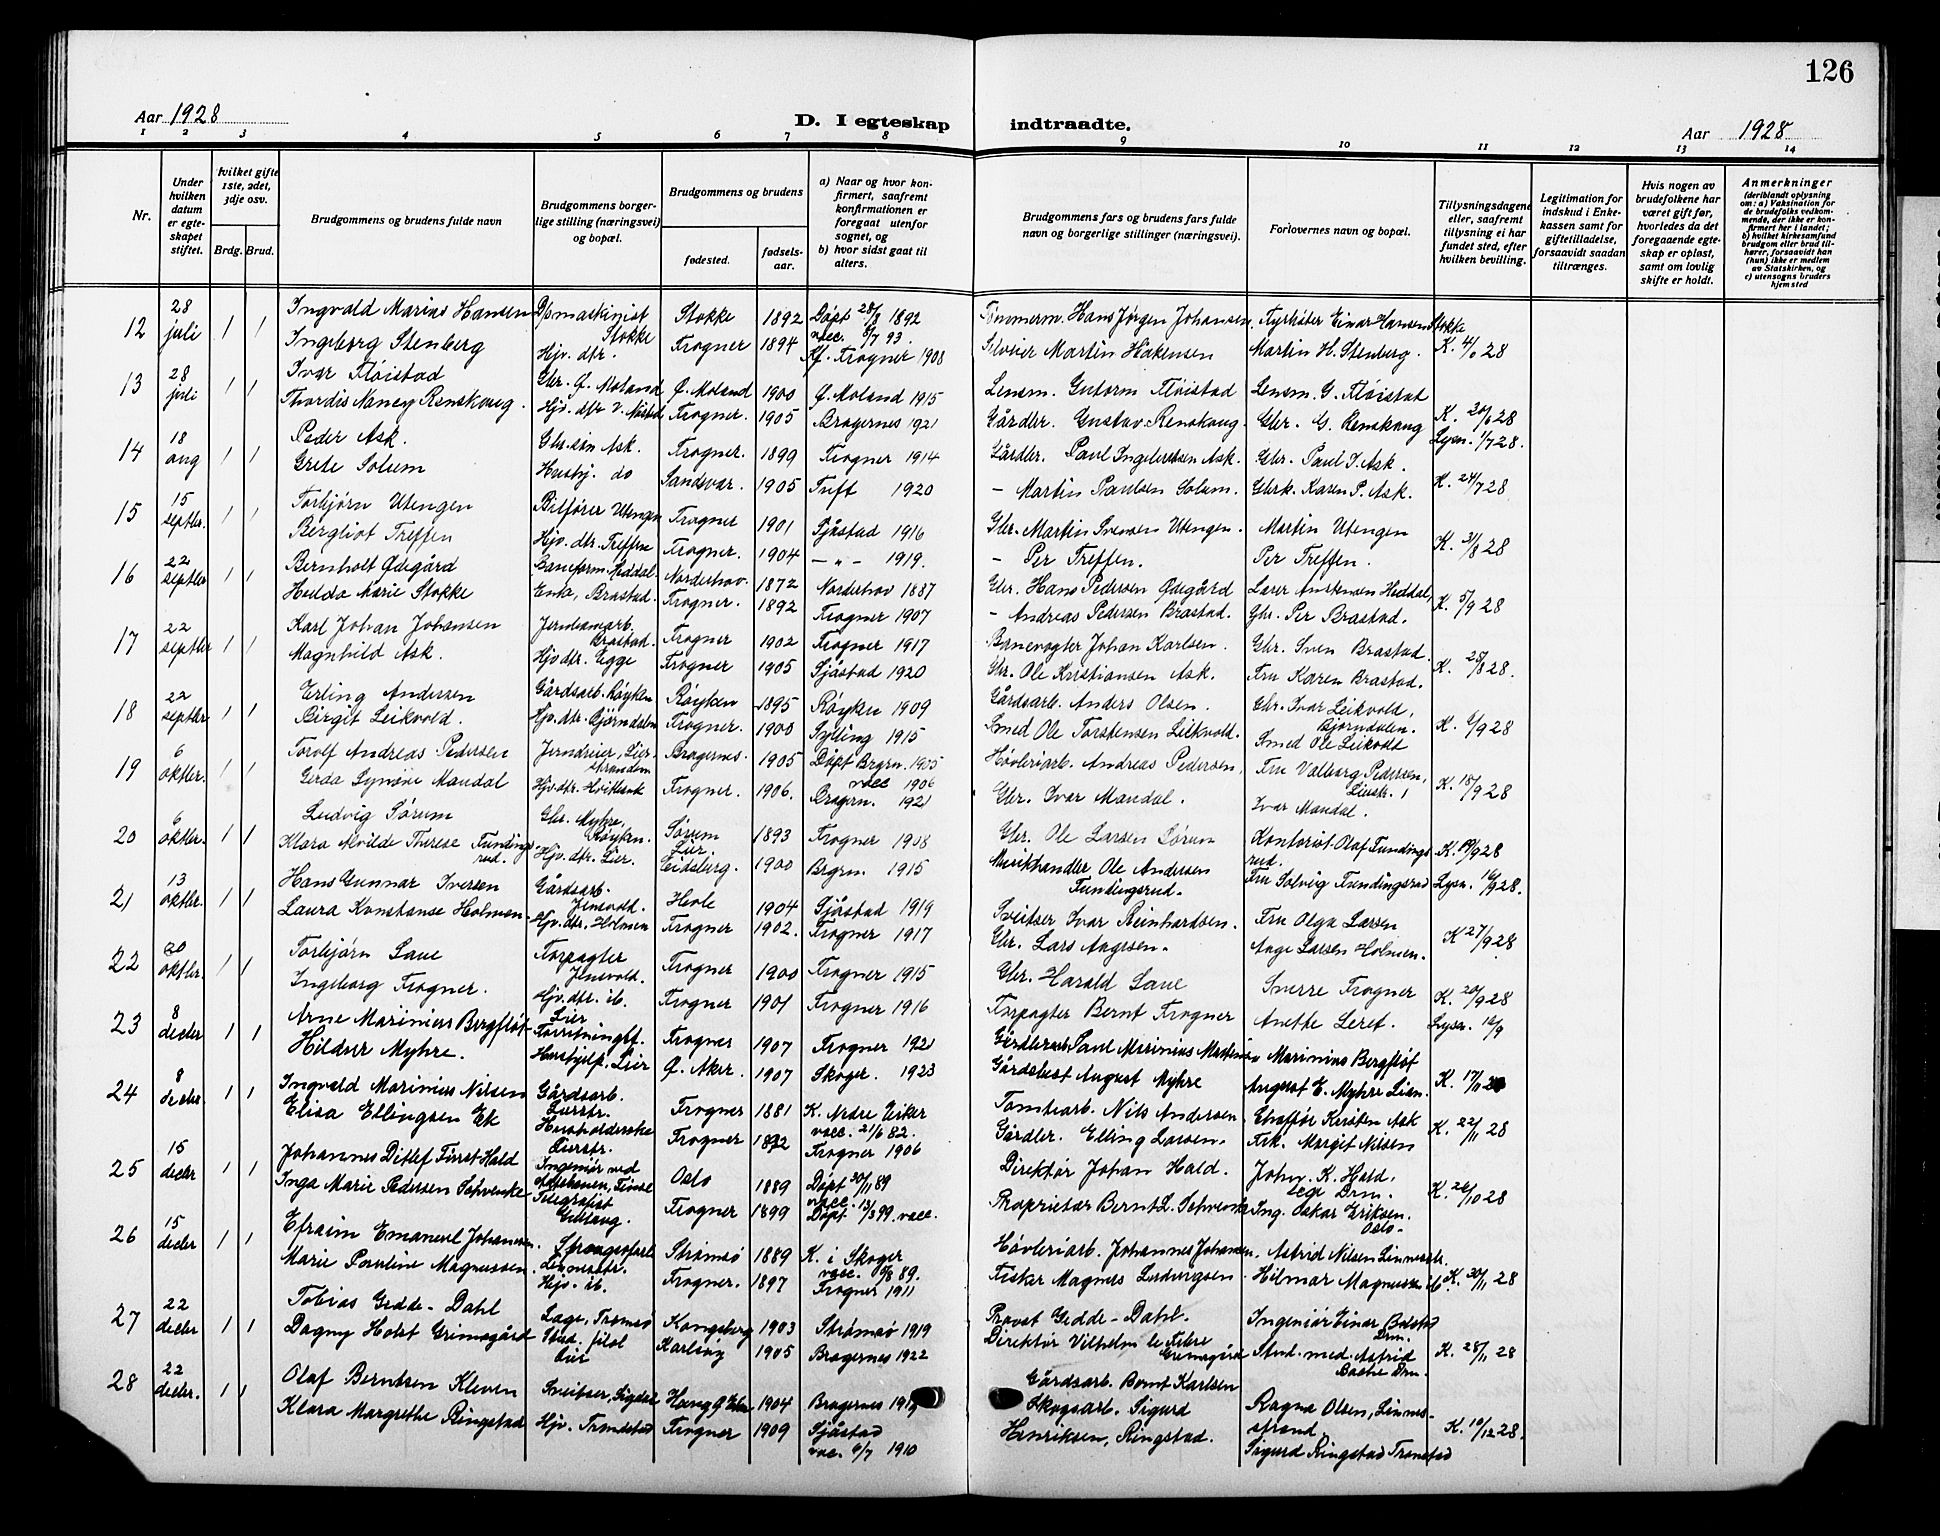 126
Aar 1928
D. I egteskap indtraadte.
Aar 1928
1 2 3 4 5 6 7 8 9 10 11 12 13 14
Nr.
Under hvilken datum er egteskapet stiftet.
hvilket gifte 1ste, 2det, 3dje osv.
Brdg. Brud.
Brudgommens og brudens fulde navn
Brudgommens borgerlige stilling (næringsvei) og bopæl.
Brudgommens og brudens
fødested.
fødselsaar.
a) Naar og hvor konfirmert, saafremt konfirmationen er foregaat utenfor sognet, og
b) hvor sidst gaat til alters.
Brudgommens fars og brudens fars fulde navn og borgerlige stillinger (næringsvei).
Forlovernes navn og bopæl.
Tillysningsdagene eller, saafremt tillysning ei har fundet sted, efter hvilken bevilling.
Legitimation for indskud i Enkekassen samt for giftetilladelse, forsaavidt saadan tiltrænges.
Hvis nogen av brudefolkene har været gift før, hvorledes da det foregaaende egteskap er opløst, samt om lovlig skifte er holdt.
Anmerkninger
(deriblandt oplysning om: a) Vaksination for de brudefolks vedkommende, der ikke er konfirmert her i landet; b) hvilket kirkesamfund brudgom eller brud tilhører, forsaavidt han (hun) ikke er medlem av Statskirken, og c) utensogns bruders hjemsted
12 28 juli 1 1 Ingvald Marius Hansen D/smaskinist Stokke Stokke 1892 Døpt 28/8 1892 vacc. 8/7 93. Tømmerm. Hans Jørgen Johansen. Fyrbøter Einar Hansen Stokke
Ingeborg Stenberg Hjv. dtr. Frogner 1894 Kf. Frogner 1908 Martin Hakensen Martin H. Stenberg. K. 28
13 28 juli 1 1 Ivar Fløistad Gbr. Ø. Moland Ø. Moland 1900 Ø. Moland 1915 Lensm. Gutorm Fløistad Lensm. G. Fløistad
Thordis Nancy Renskoug. Hjv. dtr Frogner. 1905 Bragernes 1921 Gårdbr. Gustav Renskoug Gbr. G. Renskoug K. 20/6 28 Lysn. 1/7 28.
14 18 aug 1 1 Peder Ask. Gbr. søn Ask. Frogner. 1899 Frogner 1914 Gårdbr. Paul Ingebretsen Ask. Gbr. Paul I. Ask.
Grete Solum Hushj. do Sandsvær. 1905 Tuft 1920 - Martin Paulsen Solum. Gbrk. Karen P. Ask. K. 24/7 28
15 15 septbr. 1 1 Torbjørn Utengen Bilfører Utengen Frogner 1901 Sjåstad 1916 Gbr. Martin Svensen Utengen. Martin Utengen
Bergliot Treffen Hjv. dtr. Treffen Frogner. 1904 - " - 1919. - Per Treffen. Per Treffen. K. 31/8 28
16 22 septbr 1 1 Bernholt Ødegård Baneform. Heddal. Norderhov. 1872 Norderhov 1887 Gbr. Hans Pedersen Ødegård Heddal,
Hulda Marie Stokke Enke, Brastad. Frogner. 1892 Frogner 1907 - Andreas Pedersen Brastad. Gbr. Per Brastad. K. 5/9 28
17 22 septbr 1 1 Karl Johan Johansen Jernbanearb. Brastad. Frogner 1902 Frogner 1917 Banevogter Johan Karlsen. Gbr. Sven Brastad.
Magnhild Ask. Hjv. dtr. Egge Frogner 1905 Sjåstad 1920 Gbr. Ole Kristiansen Ask. Fru Karen Brastad. K. 25/8 28.
18 22 septbr 1 1 Erling Andersen Gårdsarb. Røyken Røyken 1895 Røyken 1909 Gårdsarb. Anders Olsen. Gbr. Ivar Leikvold, Bjørndalen.
Birgit Leikvold. Hjv. dtr. Bjørndalen Frogner. 1900 Sylling 1915 Smed Ole Torstensen Leikvold. Smed Ole Leikvold K. 6/9 28
19 6 oktbr. 1 1 Torolf Andreas Pedersen Jerndreier, Lierstranden Bragernes. 1905 Døpt Brgrn. 1905 vacc 1906 Høvleriarb. Andreas Pedersen, Fru Valborg Pedersen, Lierstr.
Gerda Synøve Mandal Hjv. dtr. Hvittenk Frogner. 1906. Bragern. 1921 Gbr. Ivar Mandal. Ivar Mandal. K. 18/9 28
20 6 oktbr. 1 1 Ludvig Sørum Gbr. Myhre, Røyken. Sørum Lier. 1893 Frogner 1908 Gbr. Ole Larsen Sørum Kontorist Olaf Fundingsrud.
Klara Alvilde Therese Fundingsrud. Hjv. dtr. Lier. Eidsberg 1900 Brgrn. 1915 Musikhandler Ole Andersen Fundingsrud. Fru Solveig Fundingsrud K. 19/9 28 Lysn. 16/9 28.
21 13 oktbr. 1 1 Hans Gunnar Iversen Gårdsarb. Jensvold. Hole 1904 Sjåstad 1919 Sveitser Ivar Reinhardsen. Fru Olga Larsen
Laura Konstanse Holmen. Hjv. dtr. Holmen Frogner 1902. Frogner 1917 Gbr. Lars Aagesen. Aage Larsen Holmen. K 27/9 28
22 20 oktbr. 1 1 Torbjørn Laue Forpagter Jensvold. Frogner 1900 Frogner 1915 Gbr. Harald Laue Sverre Frogner
Ingeborg Frogner. Hjv. dtr. ib. Frogner 1901 Frogner 1916 Forpagter Bernt Frogner Anette Leret. K. 20/9 28 Lysn. 16/9
23 8 decbr 1 1 Arne Marinius Bergfløt Lier Forretningsf. Frogner 1907 Frogner 1921 Paul Marinius Marinius Bergfløt
Hildur Myhre. Hushjelp, Lier Ø. Aker. 1907 Skoger. 1923 Gårdsbest August Myhre August E. Myhre Lier. K. 17/11
24 8 decbr. 1 1 Ingvald Marinius Nilsen Gårdsarb. Lierstr. Frogner 1881 K. Nedre Eiker vacc. 21/6 82. Tomtearb. Nils Andersen Chaffør Kirsten Ask
Elisa Ellingsen Ek Husholderske Lierstr. Frogner 1892 Frogner 1906 Gårdbr. Elling Larsen. Frk. Margit Nilsen K. 22/11 28
25 15 decbr 1 1 Johannes Ditlef Fürst Hald Ingeniør ved Oslo 1889 Døpt 30/11 89 vacc. Direktør Johan Hald. John. K. Hald. Drm.
Inga Marie Pedersen Schwencke Telegrafist Gilhaug. Frogner 1899 Døpt 13/3 99. vacc. Proprietær Bernt L. Schwencke Ing. Oskar Eriksen. Oslo. K. 26/10 28
26 15 decbr 1 1 Efraim Emanuel Johansen. Linnesstr. Strømsø 1889 K. i Skoger vacc. 6/8 89. Høvleriarb. Johannes Johansen. Astrid Nilsen
Marie Pauline Magnussen. Hjv. ib. Frogner. 1897 Frogner 1911 Fisker Magnus Ludvigsen. Hilmar Magnussen K. 30/11 28
27 22 decbr 1 1 Tobias Gedde-Dahl Læge, Tromsø Kongsberg 1903 Strømsø 1919 Provst Gedde-Dahl. Ingeniør Einar Drm.
Dagny Holst Grimsgård Stud. filol Lier Karlsøy 1905 Bragernes 1922 Direktør Vilhelm Grimsgård Stud. med. Astrid Drm. K. 28/11 28
28 22 decbr. 1 1 Olaf Berntsen Kleven Sveitser, Sigdal Haug Ø. Eiker 1904 Bragernes Gårdsarb. Bernt Karlsen Ragna Olsen, Linnesstrand.
Klara Margrethe Ringstad Hjv. Tronstad Frogner 1909 Sjåstad vac. 6/7 1910 Skogsarb. Sigurd Henriksen, Ringstad. Sigurd Ringstad Tronstad K. 10/12 28.